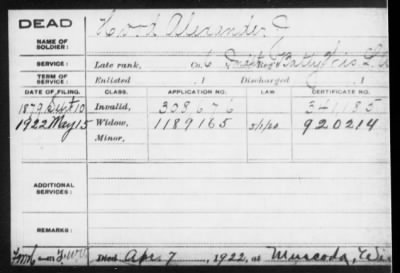 DEAD
NAME OF SOLDIER: Alexander J
SERVICE: Late rank, Co. 6 Batty Wis L. A.
TERM OF SERVICE: Enlisted , 1 Discharged , 1
DATE OF FILING. CLASS. APPLICATION NO. LAW CERTIFICATE NO.
1879 Sept 10 Invalid, 308676 341185
1922 May 15 Widow, 1189165 5/1/20 920214
Minor,
ADDITIONAL SERVICES:
REMARKS:
Died Apr. 7, 1922, at Muscoda, Wis